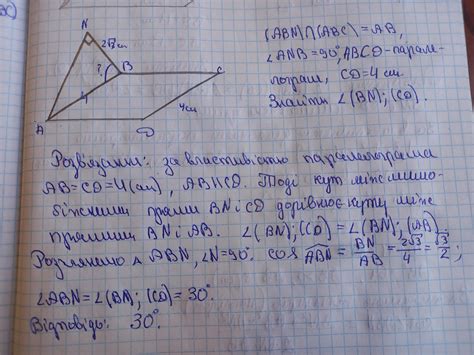 (ABN)∩(ABC)=AB,
∠ANB=90°, ABCD-парал-
лограм, CD=4 см.
Знайти ∠(BN); (CD).
N
2√3см
?
B
C
4
4см
A
D
Розвязання: за властивістю паралелограма
AB=CD=4(см), AB||CD. Тоді кут між мимо-
біжними прями BN і CD дорівнює куту між
прямими BN і AB. ∠(BN);(CD)=∠(BN);(AB)
Розглянемо Δ ABN, ∠N=90°. cos ABN = BN/AB = 2√3/4 = √3/2;
∠ABN=∠(BN;(CD)=30°.
Відповідь: 30°.